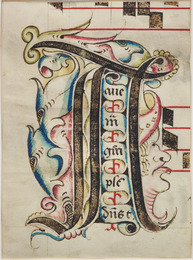 aue
m̄
gr̄a
ple
dn̄s t